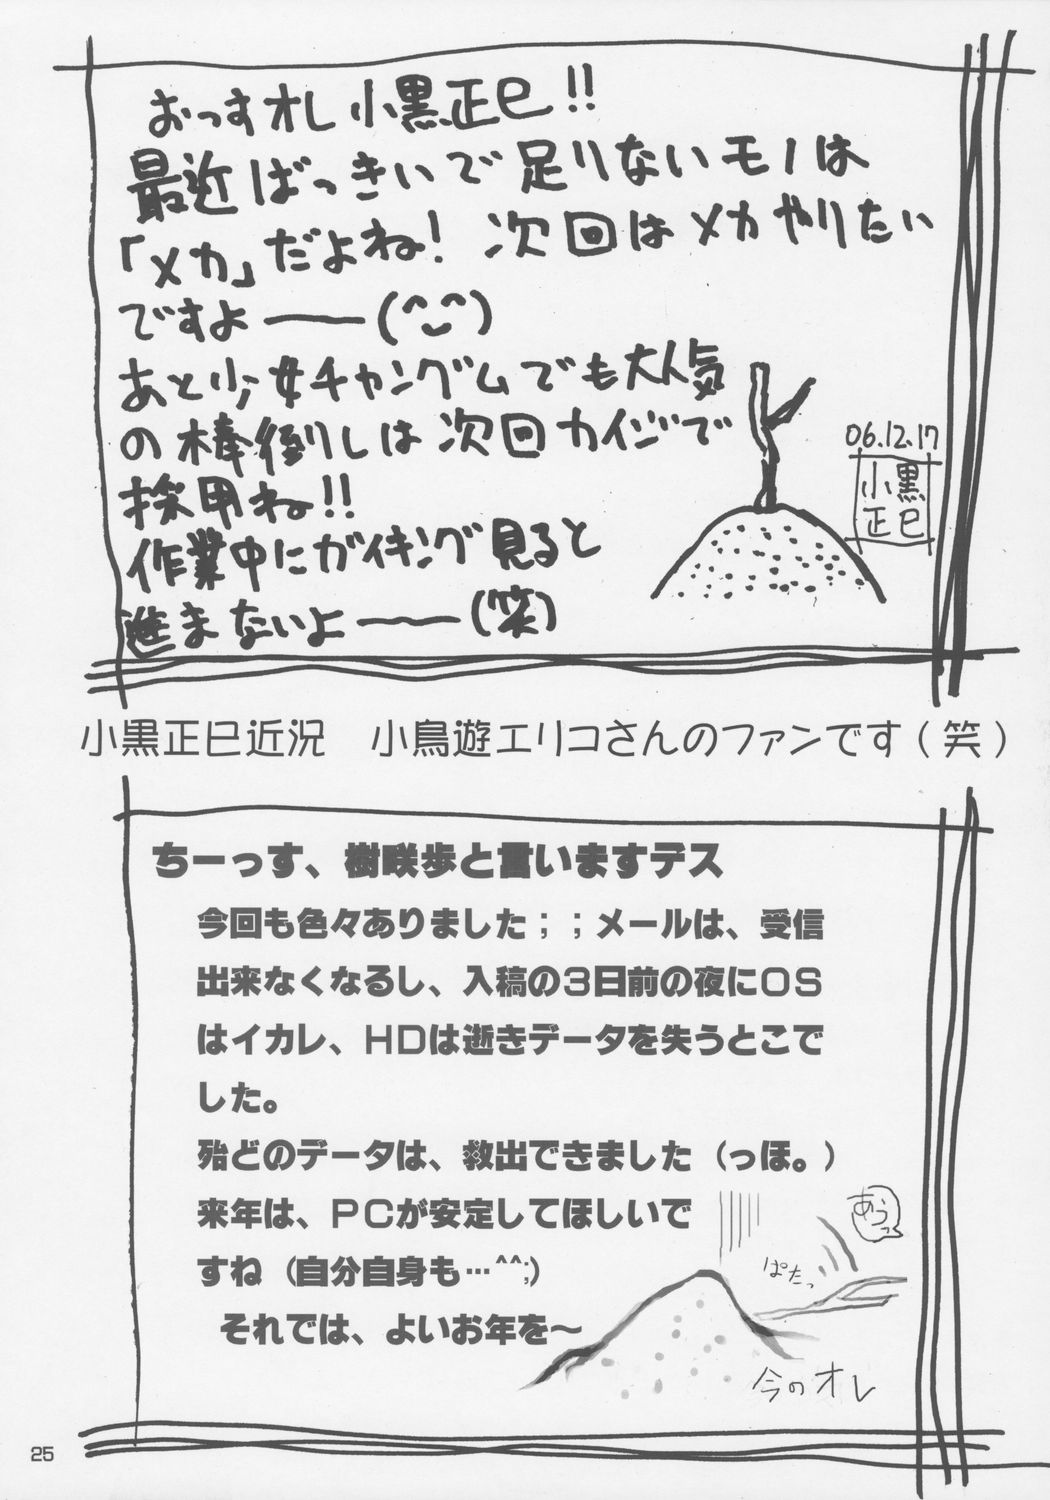 おっすオレ小黒正巳!!
最近ばっきぃで足りないモノは
「メカ」だよね! 次回はメカやりたい
ですよ――(^◡^)
あと少女チャングムでも大人気
の棒倒しは次回カイジで
採用ね!!
作業中にガイキング見ると
進まないよ――(笑)
06.12.17
小黒
正巳
小黒正巳近況　小鳥遊エリコさんのファンです(笑)
ちーっす、樹咲歩と言いますデス
今回も色々ありました；；メールは、受信
出来なくなるし、入稿の3日前の夜にOS
はイカレ、HDは逝きデータを失うとこで
した。
殆どのデータは、救出できました（っほ。）
来年は、PCが安定してほしいで
すね（自分自身も…^^;）
それでは、よいお年を～
あうっ
ぱたっ
今のオレ
25